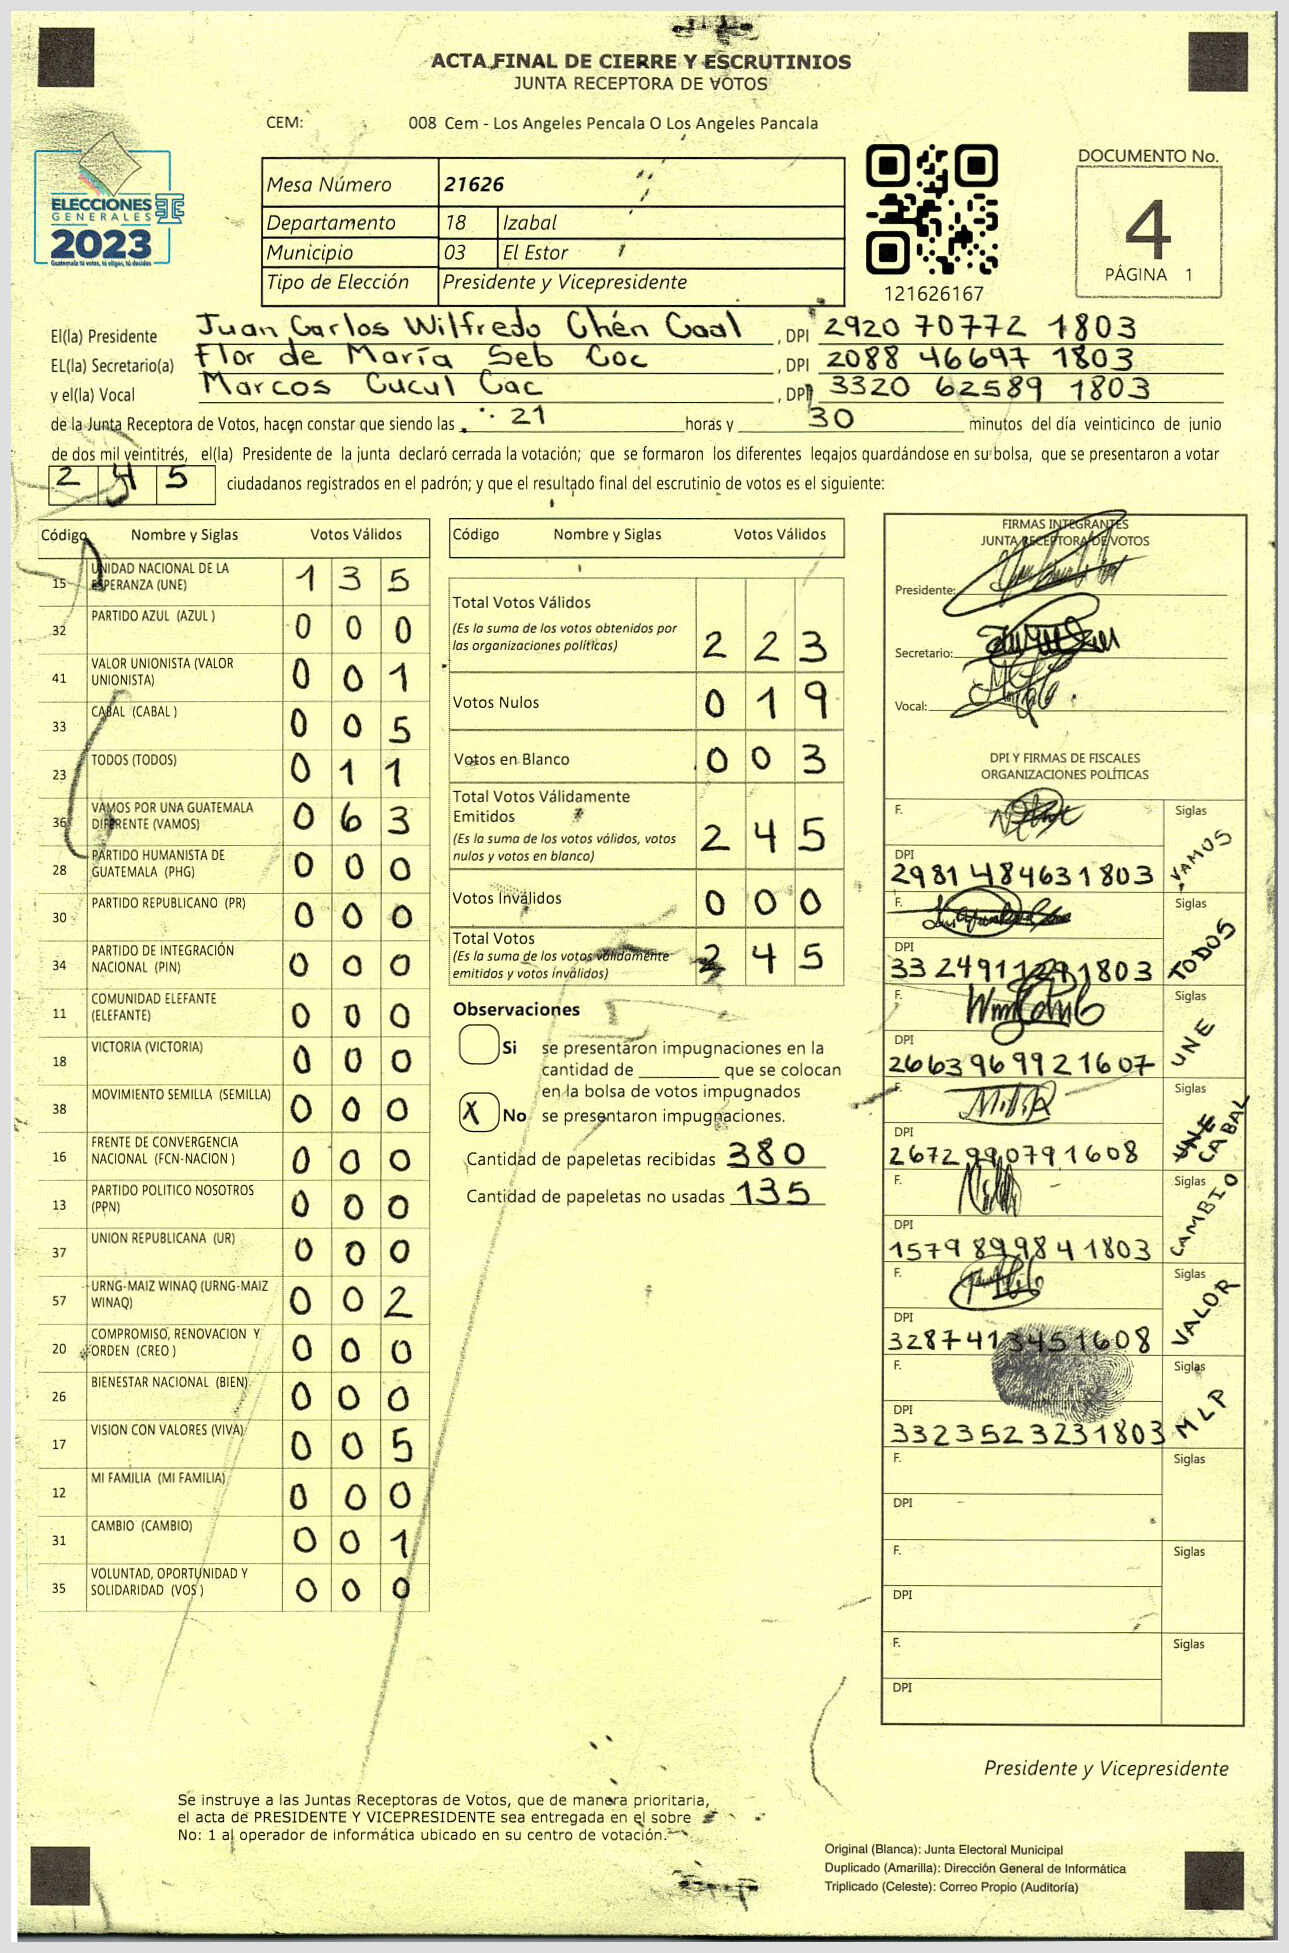 ACTA FINAL DE CIERRE Y ESCRUTINIOS
JUNTA RECEPTORA DE VOTOS
CEM: 008 Cem - Los Angeles Pencala O Los Angeles Pancala
ELECCIONES
GENERALES
2023
Guatemala tú votas, tú eliges, tú decides
Mesa Número 21626
Departamento 18 Izabal
Municipio 03 El Estor
Tipo de Elección Presidente y Vicepresidente
121626167
DOCUMENTO No.
4
PÁGINA 1
El(la) Presidente Juan Carlos Wilfredo Chén Caal , DPI 2920 70772 1803
EL(la) Secretario(a) Flor de María Seb Coc , DPI 2088 46697 1803
y el(la) Vocal Marcos Cucul Cac , DPI 3320 62589 1803
de la Junta Receptora de Votos, hacen constar que siendo las 21 horas y 30 minutos del día veinticinco de junio
de dos mil veintitrés, el(la) Presidente de la junta declaró cerrada la votación; que se formaron los diferentes legajos guardándose en su bolsa, que se presentaron a votar
245 ciudadanos registrados en el padrón; y que el resultado final del escrutinio de votos es el siguiente:
Código Nombre y Siglas Votos Válidos
15 UNIDAD NACIONAL DE LA ESPERANZA (UNE) 1 3 5
32 PARTIDO AZUL (AZUL ) 0 0 0
41 VALOR UNIONISTA (VALOR UNIONISTA) 0 0 1
33 CABAL (CABAL ) 0 0 5
23 TODOS (TODOS) 0 1 1
36 VAMOS POR UNA GUATEMALA DIFERENTE (VAMOS) 0 6 3
28 PARTIDO HUMANISTA DE GUATEMALA (PHG) 0 0 0
30 PARTIDO REPUBLICANO (PR) 0 0 0
34 PARTIDO DE INTEGRACIÓN NACIONAL (PIN) 0 0 0
11 COMUNIDAD ELEFANTE (ELEFANTE) 0 0 0
18 VICTORIA (VICTORIA) 0 0 0
38 MOVIMIENTO SEMILLA (SEMILLA) 0 0 0
16 FRENTE DE CONVERGENCIA NACIONAL (FCN-NACION ) 0 0 0
13 PARTIDO POLITICO NOSOTROS (PPN) 0 0 0
37 UNION REPUBLICANA (UR) 0 0 0
57 URNG-MAIZ WINAQ (URNG-MAIZ WINAQ) 0 0 2
20 COMPROMISO, RENOVACION Y ORDEN (CREO ) 0 0 0
26 BIENESTAR NACIONAL (BIEN) 0 0 0
17 VISION CON VALORES (VIVA) 0 0 5
12 MI FAMILIA (MI FAMILIA) 0 0 0
31 CAMBIO (CAMBIO) 0 0 1
35 VOLUNTAD, OPORTUNIDAD Y SOLIDARIDAD (VOS ) 0 0 0
Código Nombre y Siglas Votos Válidos
Total Votos Válidos
(Es la suma de los votos obtenidos por
las organizaciones políticas) 2 2 3
Votos Nulos 0 1 9
Votos en Blanco 0 0 3
Total Votos Válidamente
Emitidos
(Es la suma de los votos válidos, votos
nulos y votos en blanco) 2 4 5
Votos Inválidos 0 0 0
Total Votos
(Es la suma de los votos válidamente
emitidos y votos inválidos) 2 4 5
Observaciones
Si se presentaron impugnaciones en la
cantidad de ________ que se colocan
en la bolsa de votos impugnados
X No se presentaron impugnaciones.
Cantidad de papeletas recibidas 380
Cantidad de papeletas no usadas 135
FIRMAS INTEGRANTES
JUNTA RECEPTORA DE VOTOS
Presidente:
Secretario:
Vocal:
DPI Y FIRMAS DE FISCALES
ORGANIZACIONES POLÍTICAS
F. Siglas VAMOS
DPI
2981484631803
F. Siglas TODOS
DPI
3324911291803
F. Siglas UNE
DPI
2663969921607
F. Siglas CABAL
DPI
2672990791608
F. Siglas CAMBIO
DPI
1579899841803
F. Siglas VALOR
DPI
3287413451608
F. Siglas MLP
DPI
3323523231803
F. Siglas
DPI
F. Siglas
DPI
F. Siglas
DPI
Presidente y Vicepresidente
Se instruye a las Juntas Receptoras de Votos, que de manera prioritaria,
el acta de PRESIDENTE Y VICEPRESIDENTE sea entregada en el sobre
No: 1 al operador de informática ubicado en su centro de votación.
Original (Blanca): Junta Electoral Municipal
Duplicado (Amarilla): Dirección General de Informática
Triplicado (Celeste): Correo Propio (Auditoría)